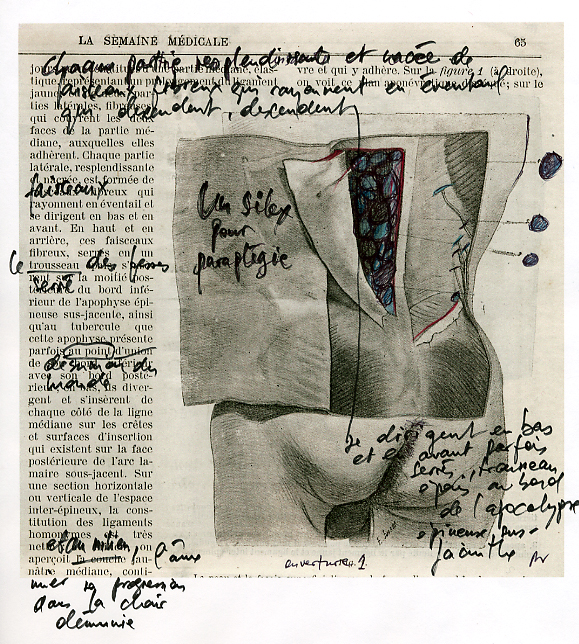 LA SEMAINE MÉDICALE 65
chaque partie resplendissante et nacée de
faisceaux fibreux qui rayonnent en éventail
qui descendent, descendent
vre et qui y adhère. Sur la figure 1 (à droite),
ties latérales, fibreuses
qui couvrent les deux
faces de la partie mé-
diane, auxquelles elles
adhèrent. Chaque partie
latérale, resplendissante
et nacrée, est formée de
faisceaux
rayonnent en éventail et
se dirigent en bas et en
avant. En haut et en
arrière, ces faisceaux
fibreux, serrés en un
trousseau
Un silex
pour
paraplégie
le
serré
sur la moitié pos-
du bord infé-
rieur de l'apophyse épi-
neuse sus-jacente, ainsi
qu'au tubercule que
cette apophyse présente
parfois au point d'union
désormais du
monde
avec son bord posté-
rieur en bas, ils diver-
gent et s'insèrent de
chaque côté de la ligne
médiane sur les crêtes
et surfaces d'insertion
qui existent sur la face
postérieure de l'arc la-
maire sous-jacent. Sur
une section horizontale
ou verticale de l'espace
inter-épineux, la cons-
titution des ligaments
homonymes est très
et au milieu, l'âme
aperçoit la couche jau-
nâtre médiane, conti-
progression
dans la chair
démunie
se dirigent en bas
et en avant parfois
serrés, trousseau
épais au bord
de l'apocalypse
épineuse, sus-
jacinthe
ouverture 1.